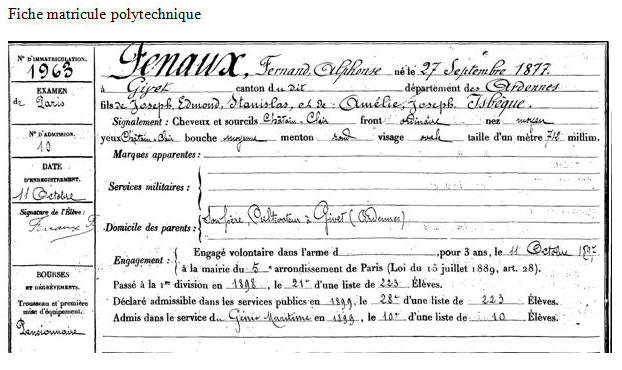 Fiche matricule polytechnique
N° D'IMMATRICULATION.
1963
EXAMEN
de Paris
N° D'ADMISSION.
10
DATE
D'ENREGISTREMENT.
11 Octobre
Signature de l'Élève:
Fenaux F
BOURSES
ET DÉGRÈVEMENTS.
Trousseau et première
mise d'équipement.
Pensionnaire
FENAUX, Fernand, Alphonse né le 27 Septembre 1877.
à Givet canton du dit département des Ardennes
fils de Joseph, Edmond, Stanislas, et de Amélie, Joseph Isbêque.
Signalement : Cheveux et sourcils Châtain-Clair front ordinaire nez moyen
yeux Châtain-Clair bouche moyenne menton rond visage ovale taille d'un mètre 712 millim.
Marques apparentes :
Services militaires :
Domicile des parents : Son frère, Cultivateur à Givet (Ardennes)
Engagement : Engagé volontaire dans l'arme d , pour 3 ans, le 11 Octobre 1897
à la mairie du 5e arrondissement de Paris (Loi du 15 juillet 1889, art. 28).
Passé à la 1re division en 1898, le 21e d'une liste de 223 Élèves.
Déclaré admissible dans les services publics en 1899, le 28e d'une liste de 223 Élèves.
Admis dans le service du Génie Maritime en 1899, le 10e d'une liste de 10 Élèves.